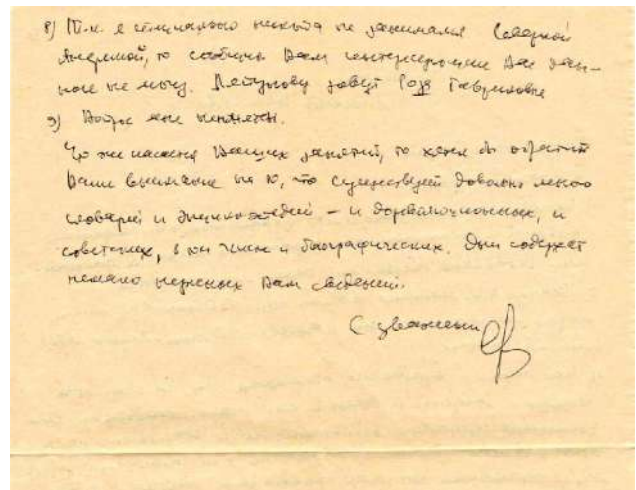 8) Т.к. я специально никогда не занимался Северной
Академией, то сообщить Вам интересующие Вас дан-
ные не могу. зовут Гавриловна
9) Вопрос мне непонятен.
Что же касается Ваших занятий, то хотел бы обратить
Ваше внимание на то, что существует довольно много
словарей и энциклопедий – и дореволюционных, и
советских, в том числе и биографических. Они содержат
немало нужных Вам сведений.
С уважением